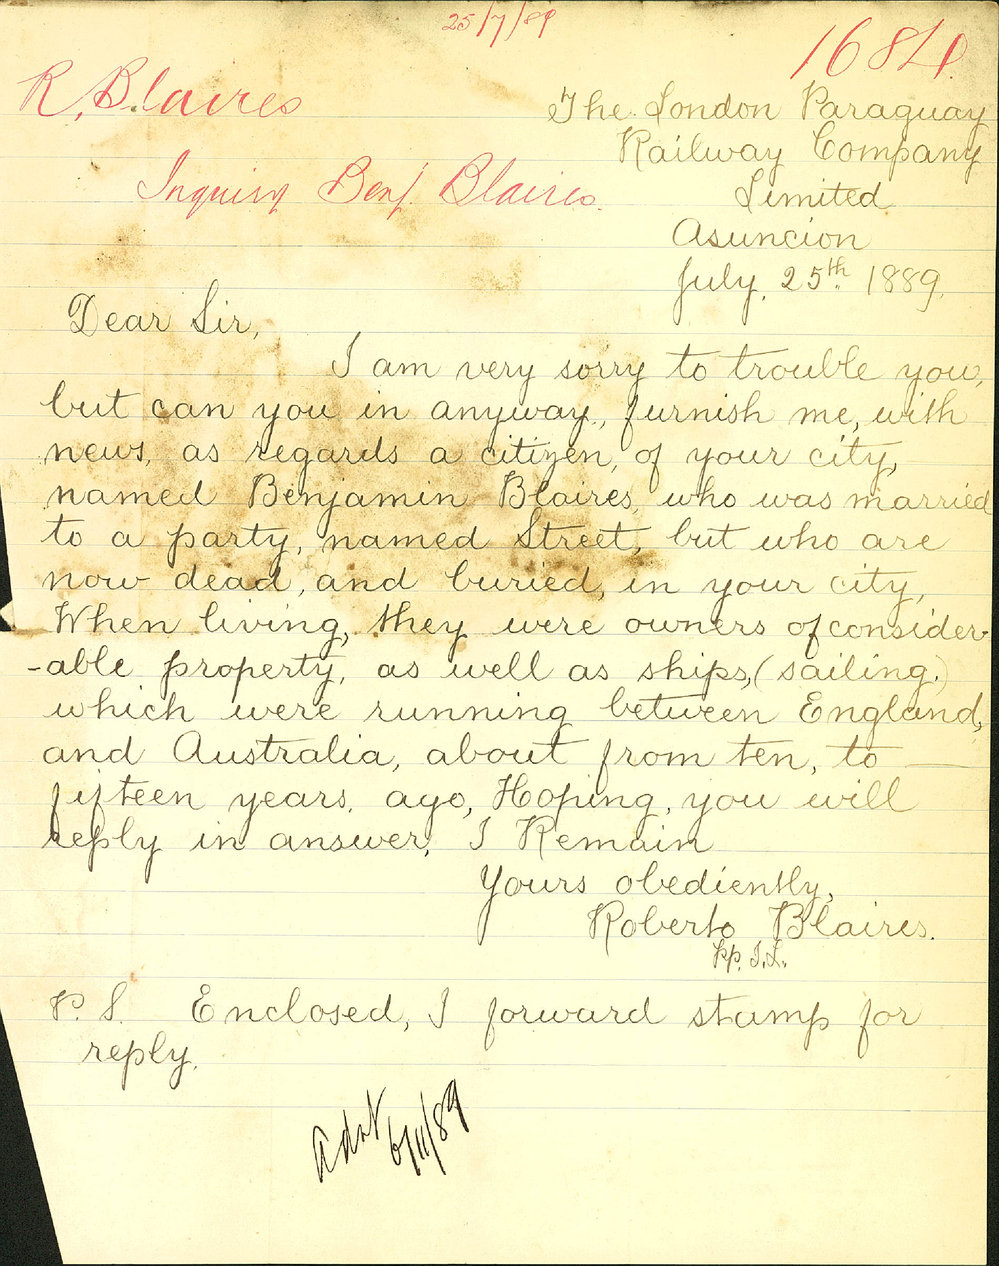 25/7/89
1684
R. Blaires
Inquiry Benj. Blaires.
The London Paraguay
Railway Company
Limited
Asuncion
July, 25th. 1889.
Dear Sir,
I am very sorry to trouble you,
but can you in anyway, furnish me, with
news, as regards a citizen, of your city,
named Benjamin Blaires, who was married
to a party, named Street, but who are
now dead, and buried, in your city,
When living, they were owners of consider-
-able property, as well as ships, (sailing.)
which were running between England,
and Australia, about from ten, to
fifteen years, ago, Hoping, you will
reply in answer, I Remain
Yours obediently,
Roberto Blaires.
pp. I.L.
P.S. Enclosed, I forward stamp for
reply.
6/11/89